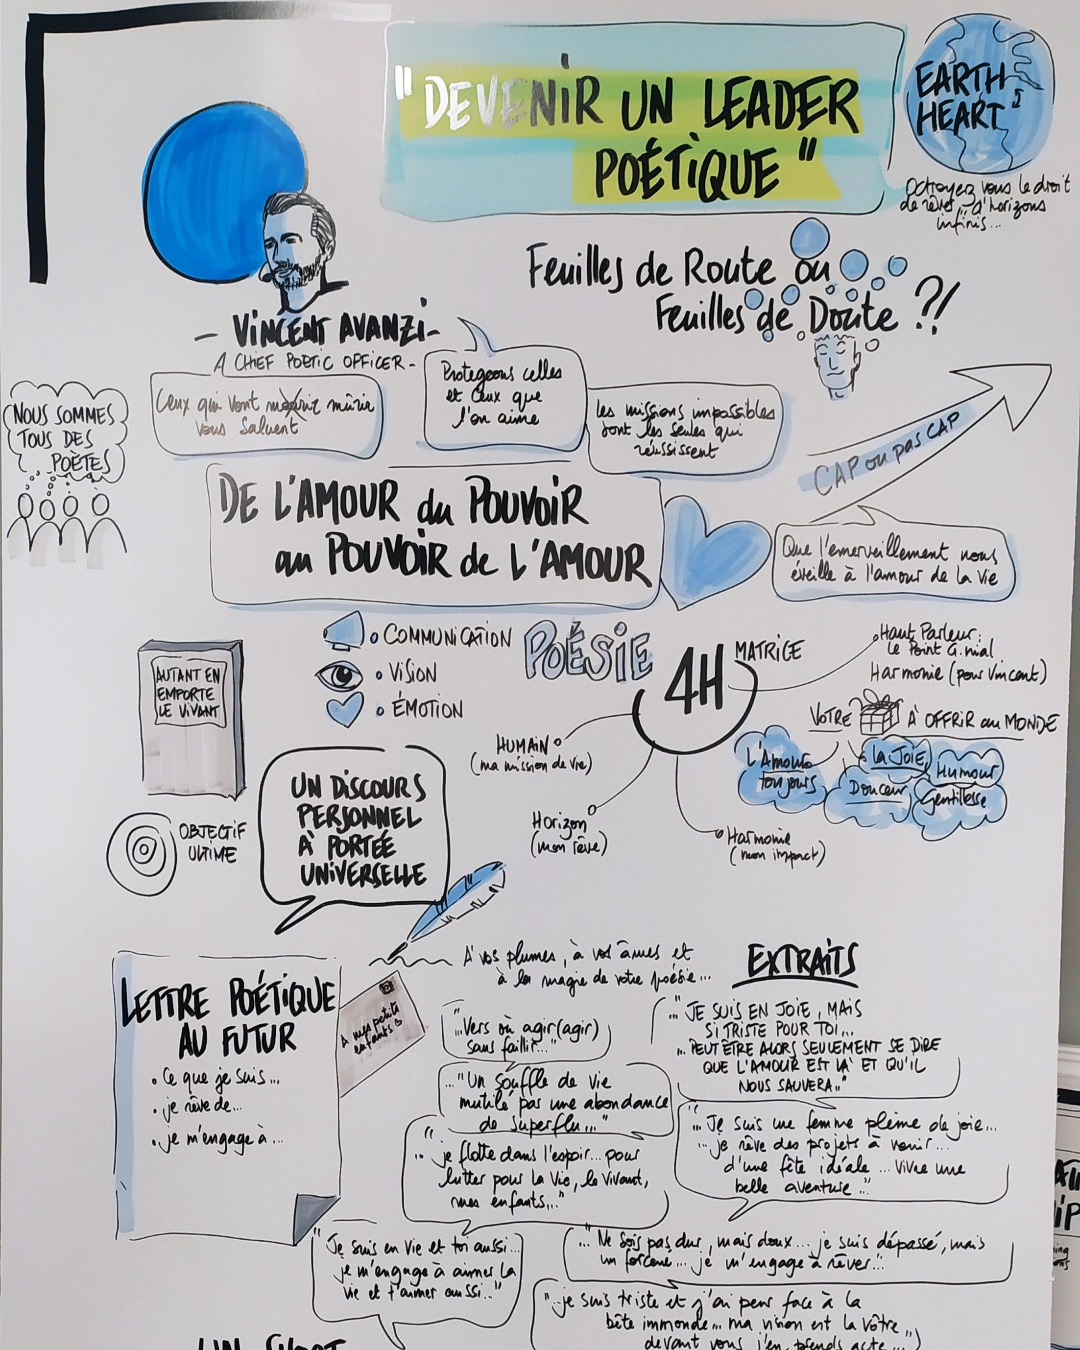 "DEVENIR UN LEADER
POÉTIQUE"
EARTH
HEART
Octroyez vous le droit
de rêver d'horizons
infinis...
Feuilles de Route ou
Feuilles de Doute ?!
- VINCENT AVANZI -
A CHIEF POETIC OFFICER -
NOUS SOMMES
TOUS DES
POÈTES
Ceux qui vont mourir mûrir
vous saluent
Protegeons celles
et ceux que
l'on aime
les missions impossibles
sont les seules qui
réussissent
CAP ou pas CAP
DE L'AMOUR du POUVOIR
au POUVOIR de L'AMOUR
Que l'émerveillement nous
éveille à l'amour de la vie
• COMMUNICATION
• VISION
• ÉMOTION
POÉSIE
4H
MATRICE
Haut Parleur:
le Point G.nial
Harmonie (pour Vincent)
HUMAIN
(ma mission de vie)
Horizon
(mon rêve)
Harmonie
(mon impact)
VOTRE À OFFRIR au MONDE
L'Amour
toujours
La JOIE
Douceur
Humour
Gentillesse
AUTANT EN
EMPORTE
LE VIVANT
OBJECTIF
ULTIME
UN DISCOURS
PERSONNEL
À PORTÉE
UNIVERSELLE
À vos plumes, à vos âmes et
à la magie de votre poésie...
LETTRE POÉTIQUE
AU FUTUR
• Ce que je suis...
• je rêve de...
• je m'engage à...
À mes petits
enfants
EXTRAITS
"...Vers où agir(agir)
sans faillir..."
..."Un souffle de vie
mutilé par une abondance
de superflu..."
"... je flotte dans l'espoir... pour
lutter pour la vie, le vivant,
mes enfants..."
"Je suis en vie et toi aussi...
je m'engage à aimer la
vie et t'aimer aussi..."
..."JE SUIS EN JOIE, MAIS
SI TRISTE POUR TOI...
... PEUT ÊTRE ALORS SEULEMENT SE DIRE
QUE L'AMOUR EST LÀ ET QU'IL
NOUS SAUVERA.."
"... Je suis une femme pleine de joie...
... je rêve des projets à venir...
d'une fête idéale... Vivre une
belle aventure..."
"... Ne sois pas dur, mais doux... je suis dépassé, mais
un forcené... je m'engage à rêver..."
"...je suis triste et j'ai peur face à la
bête immonde... ma vision est la vôtre...
devant vous j'en prends acte..."